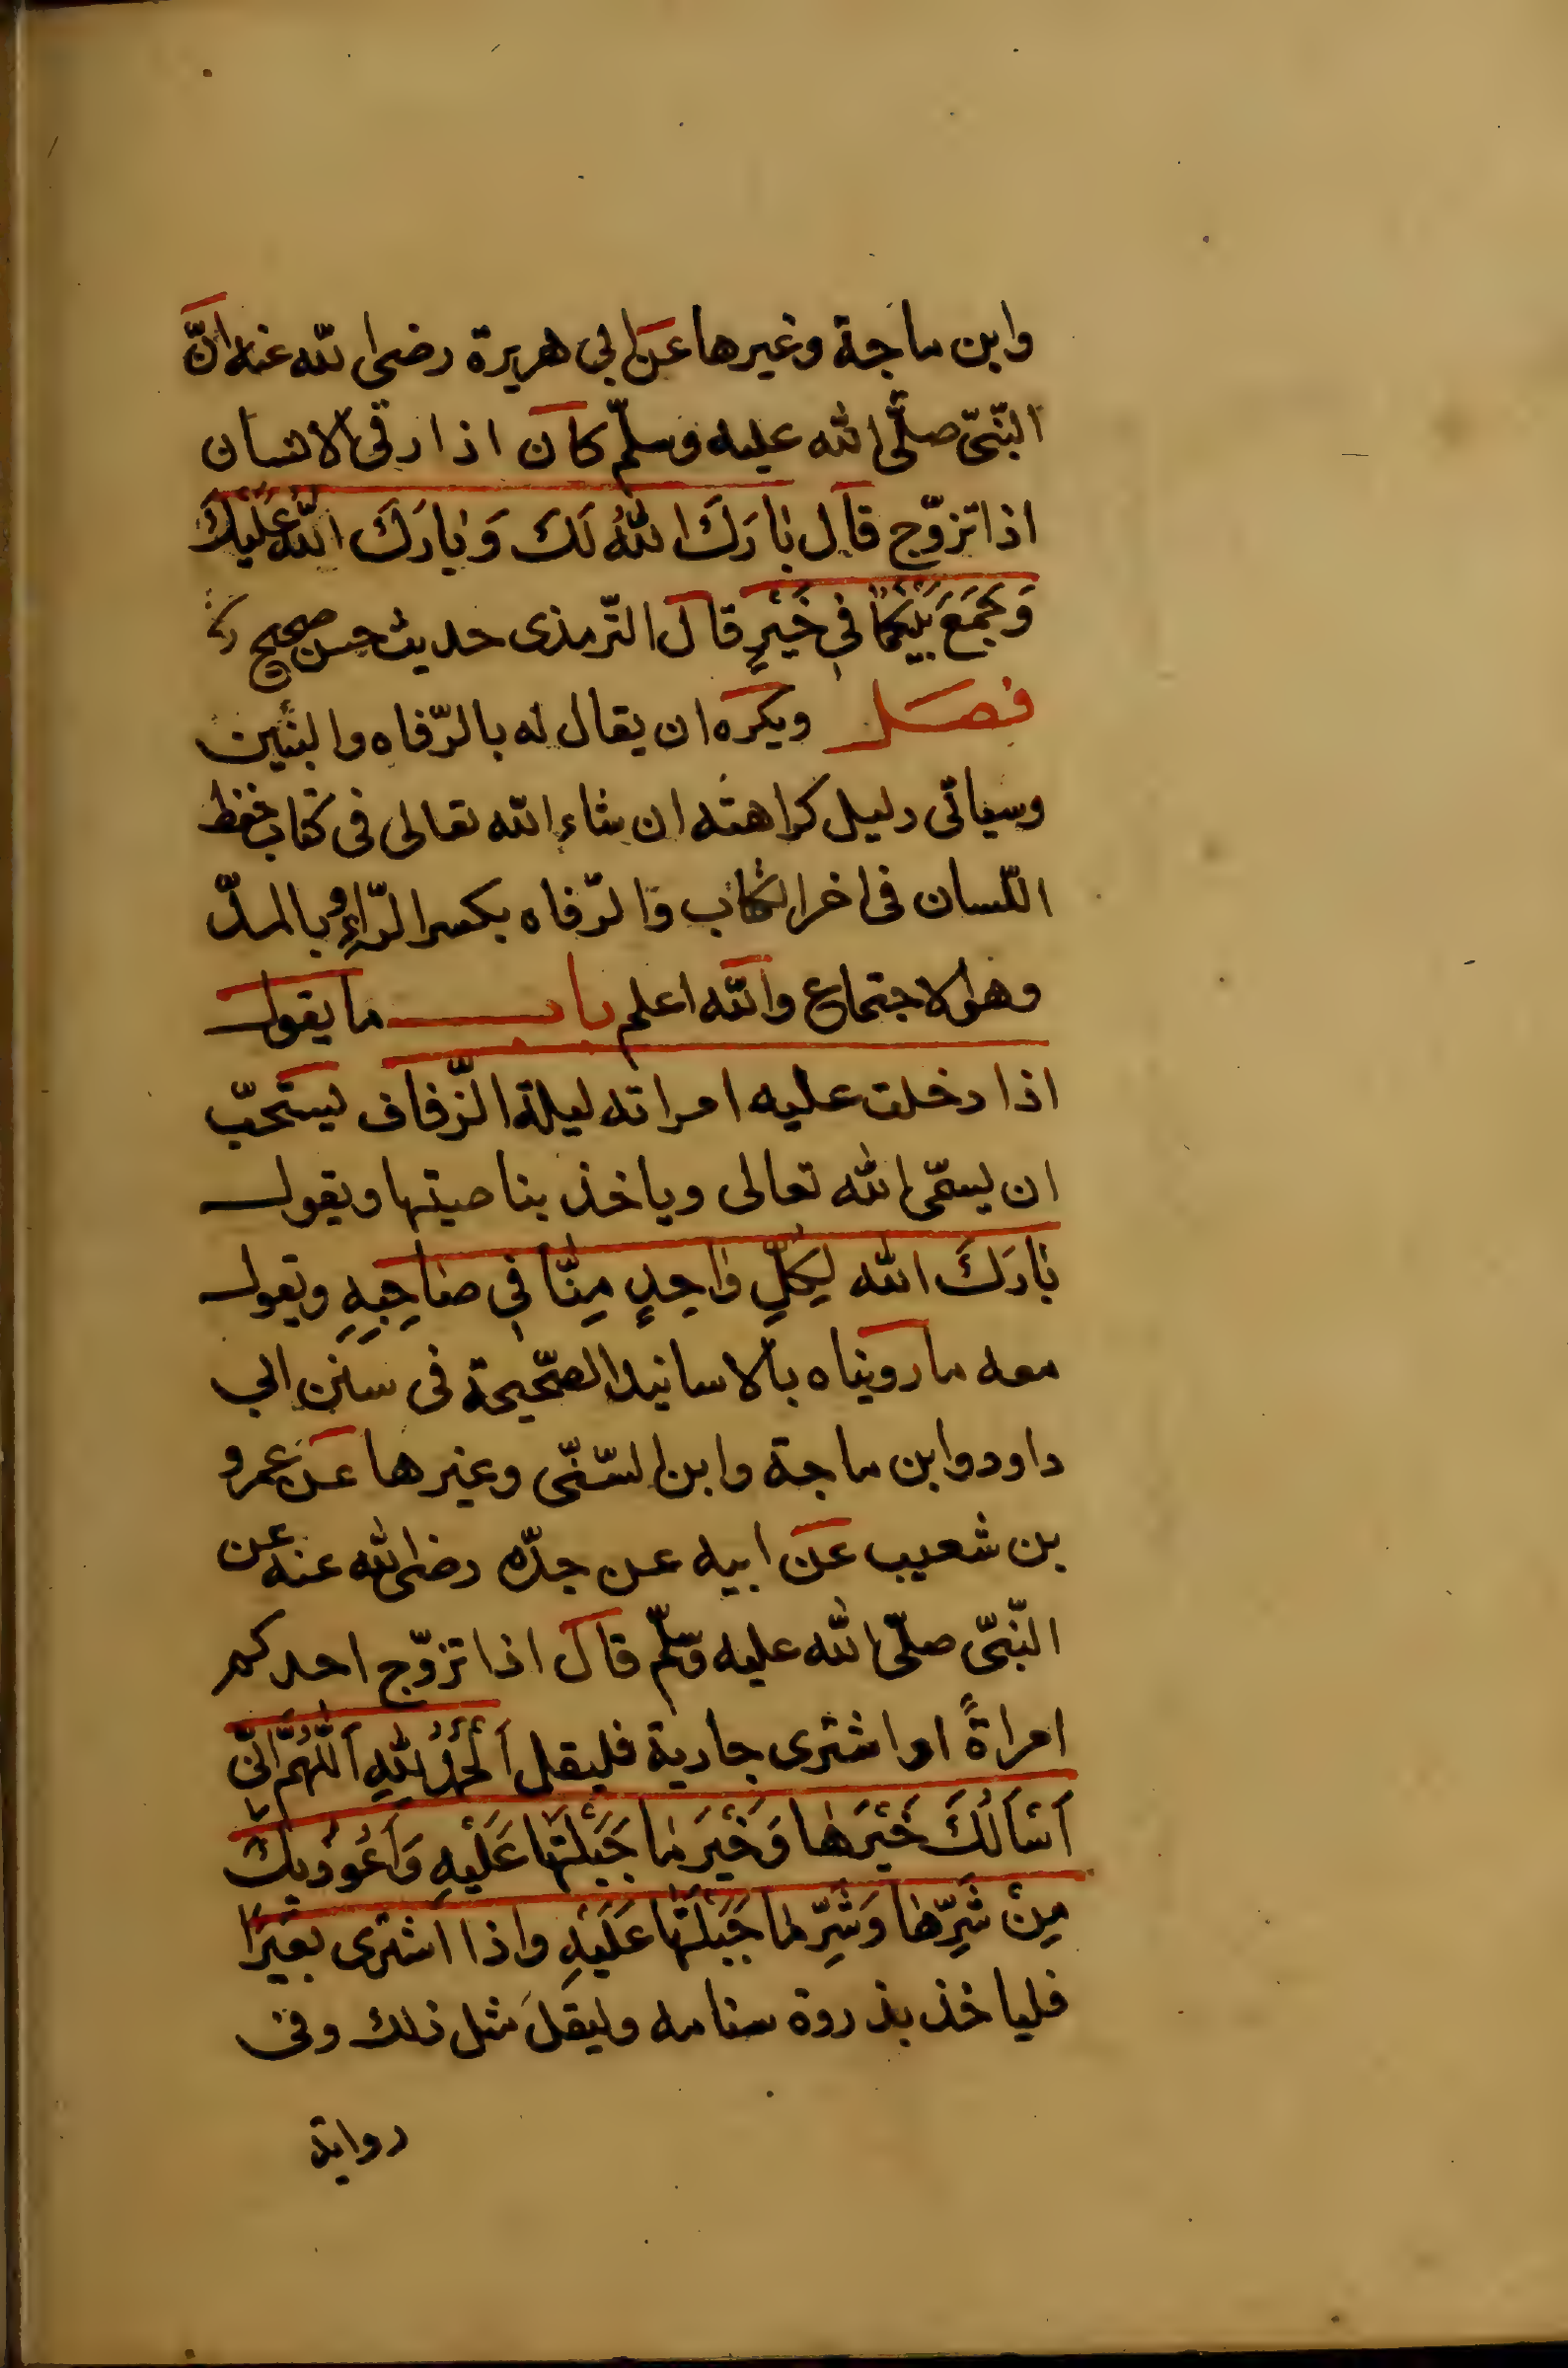 وابن ماجة وغيرها عن ابي هريرة رضى الله عنه انّ
النّبىّ صلّى الله عليه وسلّم كان اذا رقى الانسان
اذا تزوّج قال بَارَكَ اللهُ لَكَ وَبَارَكَ اللهُ عَلَيْكَ
وَجَمَعَ بَيْنَكُمَا فِي خَيْرٍ قال التّرمذى حديث حسن صحيح
فصل ويكره ان يقال له بالرّفاه والبنين
وسياتى دليل كراهته ان شاء الله تعالى فى كتاب حفظ
اللّسان فى اخر الكتاب والرّفاه بكسر الرّاءِ وبالمدّ
وهو الاجتماع والله اعلم باب ما يقول
اذا دخلت عليه امراته ليلة الزّفاف يستحبّ
ان يسمّى الله تعالى وياخذ بناصيتها ويقول
بَارَكَ الله لِكُلِّ وَاحِدٍ مِنَّا فِي صَاحِبِهِ ويقول
معه ما رويناه بالاسانيد الصّحيحة فى سنن ابي
داود وابن ماجة وابن السّنّى وغيرها عن عمرو
بن شعيب عن ابيه عن جدّه رضى الله عنه عن
النّبىّ صلّى الله عليه وسلّم قال اذا تزوّج احدكم
امراةً او اشترى جارية فليقل اَلْحَمْدُ لِلّهِ اَللّهُمَّ اِنّى
اَسْاَلُكَ خَيْرَهَا وَخَيْرَ مَا جَبَلْتَهَا عَلَيْهِ وَاَعُوذُ بِكَ
مِنْ شَرِّهَا وَشَرِّ مَا جَبَلْتَهَا عَلَيْهِ واذا اشترى بعيرًا
فلياخذ بذروة سنامه وليقل مثل ذلك وفى
رواية